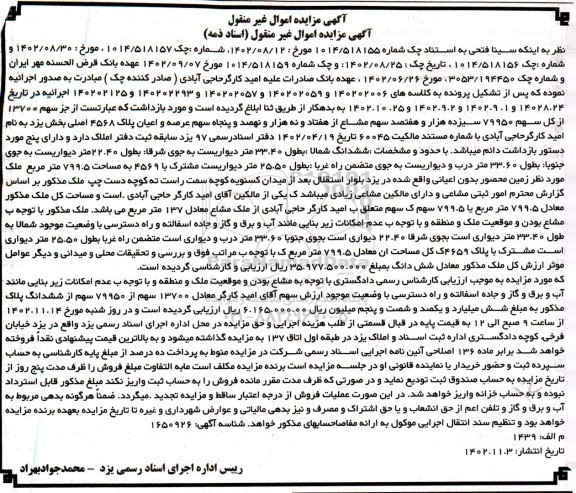 آگهی مزایده اموال غیر منقول
آگهی مزایده اموال غیر منقول (اسناد ذمه)
نظر به اینکه سینا فتحی به استناد چک شماره ۱۰۱۴/۵۱۸۱۵۵ مورخ : ۱۴۰۲/۰۸/۱۲، شماره :چک ۱۰۱۴/۵۱۸۱۵۷ ، مورخ : ۱۴۰۲/۰۸/۳۰ و
شماره :چک ۱۰۱۴/۵۱۸۱۵۶ ، تاریخ چک : ۱۴۰۲/۰۸/۲۵: و چک شماره ۱۰۱۴/۵۱۸۱۵۹ مورخ ۱۴۰۲/۰۹/۰۷ عهده بانک قرض الحسنه مهر ایران
و شماره چک ۳۰۵۳/۱۹۴۴۵۰، مورخ ۱۴۰۲/۰۶/۲۶ ، عهده بانک صادرات علیه امید کارگرحاجی آبادی ( صادر کننده چک ) مبادرت به صدور اجرائیه
نموده که پس از تشکیل پرونده به کلاسه های ۱۴۰۲۰۲۰۰۶ و ۱۴۰۲۰۲۰۵۹ و ۱۴۰۲۰۲۰۵۷ و ۱۴۰۲۰۲۲۹۳ و ۱۴۰۲۰۲۱۲۵ اجرائیه در تاریخ
۱۴۰۲۸.۲۴ و ۱۴۰۲.۹.۱ و ۱۴۰۲.۹.۲ و ۱۴۰۲.۱۰.۲۵ به بدهکار از طریق ثنا ابلاغ گردیده است و مورد بازداشت که عبارتست از جز سهم ۱۳۷۰۰
از کل سهم ۷۹۹۵۰ سیزده هزار و هفتصد سهم مشاع از هفتاد و نه هزار و نهصد و پنجاه سهم عرصه و اعیان پلاک ۴۵۶۸ اصلی بخش یزد به نام
امید کارگرحاجی آبادی با شماره مستند مالکیت ۶۰۰۴۵ تاریخ ۱۴۰۲/۰۴/۱۹ دفتر اسنادرسمی ۹۷ یزد سابقه ثبت دفتر املاک دارد و دارای پنج مورد
دستور بازداشت دائم میباشد. با حدود و مشخصات :ششدانگ شمالا :بطول ۳۳.۴۰ متر دیواریست به جوی شرقا: بطول ۲۲.۴۰متر دیواریست به جوی
جنوبا: بطول ۳۳.۶۰ متر درب و دیواریست به جوی متضمن راه غربا :بطول ۲۵.۵۰ متر دیواریست مشترک با ۴۵۶۹ به مساحت ۷۹۹.۵ متر مربع ملک
مورد نظر زمین محصور بدون اعیانی واقع شده در یزد بلوار استقلال بعد از میدان کسنویه کوچه سمت راست ته کوچه دست چپ ملک مذکور بر اساس
گزارش محترم امور ثبتی مشاعی و دارای مالکین مشاعی زیادی میباشد ک یکی از مالکین آقای امید کارگر حاجی آبادی .است و مساحت کل ملک مذکور
معادل ۷۹۹.۵ متر مربع یا ۷۹۹.۵ سهم ک سهم متعلق ب امید کارگر حاجی آبادی از ملک مشاع معادل ۱۳۷ متر مربع می باشد. ملک مذکور با توجه ب
مشاع بودن و موقعیت ملک و منطقه و با توجه ب عدم امکانات زیر بنایی مانند آب و برق و گاز و جاده اسفالته و راه دسترسی با وضعیت موجود شمالا به
طول ۳۳.۴۰ متر دیواری است بجوی شرقا ۲۲.۴۰ دیواری است بجوی جنوبا ۳۳.۶۰ متر درب و دیواری است متضمن راه غربا بطول ۲۵.۵۰ متر دیواری
است مشترک با پلاک ۴۶۵۹ک کل مساحت ان معادل ۷۹۹.۵ متر مربع ک با توجه ب مراتب فوق و بررسی و تحقیقات محلی و میدانی و دیگر عوامل
موثر ارزش کل ملک مذکور معادل شش دانگ بمبلغ ۳۵.۹۷۷.۵۰۰.۰۰۰ ریال ارزیابی و کارشناسی گردیده است.
که مورد مزایده به موجب ارزیابی کارشناس رسمی دادگستری با توجه به مشاع بودن و موقعیت ملک و منطقه و با توجه ب عدم امکانات زیر بنایی مانند
آب و برق و گاز و جاده اسفالته و راه دسترسی با وضعیت موجود ارزش سهم آقای امید کارگر معادل ۱۳۷۰۰ سهم از ۷۹۹۵۰ سهم از ششدانگ پلاک
مذکور به مبلغ شش میلیارد و یکصد و شصت و پنجم میلیون ریال ۶.۱۶۵.۰۰۰.۰۰۰ ریال ارزیابی گردیده است و در روز شنبه مورخ ۱۴۰۲.۱۱.۱۴
از ساعت ۹ صبح الی ۱۲ به قیمت پایه در قبال قسمتی از طلب هزینه اجرایی و حق مزایده در محل اداره اجرای اسناد رسمی یزد واقع در یزد خیابان
فرخی، کوچه دادگستری اداره ثبت اسناد و املاک یزد در طبقه اول اتاق ۱۳۷ به مزایده گذاشته میشود و به بالاترین قیمت پیشنهادی نقداً فروخته
خواهد شد برابر ماده ۱۳۶ اصلاحی آئین نامه اجرایی اسناد رسمی شرکت در مزایده منوط به پرداخت ده درصد از مبلغ پایه کارشناسی به حساب
سپرده ثبت و حضور خریدار یا نماینده قانونی او در جلسه مزایده است برنده مزایده مکلف است مابه التفاوت مبلغ فروش را ظرف مدت پنج روز از
تاریخ مزایده به حساب صندوق ثبت تودیع نماید و در صورتی که ظرف مدت مقرر مانده فروش را به حساب ثبت واریز نکند مبلغ مذکور قابل استرداد
نبوده و به حساب خزانه واریز خواهد شد. در این صورت عملیات فروش از درجه اعتبار ساقط و مزایده تجدید .میگردد. ضمناً هرگونه بدهی مربوط به
آب و برق و گاز و تلفن اعم از حق انشعاب و یا حق اشتراک و مصرف و نیز بدهی مالیاتی و عوارض شهرداری و غیره تا تاریخ مزایده بعهده برنده مزایده
خواهد بود و تنظیم سند انتقال اجرایی موکول به ارائه مفاصاحسابهای مذکور خواهد. شناسه آگهی: ۱۶۵۰۹۲۶
م الف: ۱۴۳۹
تاریخ انتشار: ۱۴۰۲.۱۱.۳
رییس اداره اجرای اسناد رسمی یزد - محمدجوادبهراد